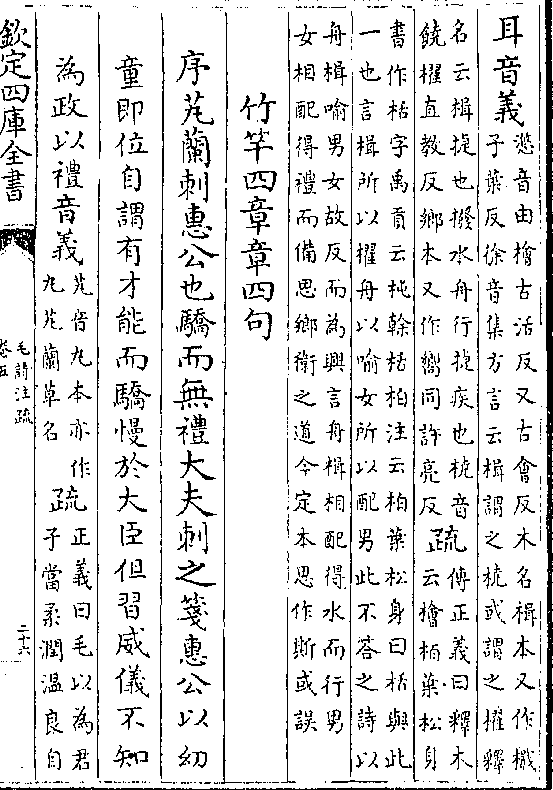 耳音義滺音由檜古活反又古會反木名楫本又作檝
子葉反徐音集方言云楫謂之橈或謂之櫂釋
名云楫捷也撥水舟行捷疾也橈音
饒櫂直教反鄉本又作嚮同許亮反
疏傳正義曰釋木
云檜柏葉松身
書作栝字禹貢云杶榦栝柏注云柏葉松身曰栝與此
一也言楫所以櫂舟以喻女所以配男此不答之詩以
舟楫喻男女故反而為興言舟楫相配得水而行男
女相配得禮而備思鄉衛之道今定本思作斯或誤
竹竿四章章四句
序芄蘭刺惠公也驕而無禮大夫刺之箋惠公以幼
童即位自謂有才能而驕慢於大臣但習威儀不知
為政以禮音義芄音丸本亦作
丸芄蘭草名
疏正義曰毛以為君
子當柔潤溫良自
欽定四庫全書
毛詩注疏
卷五
二十六